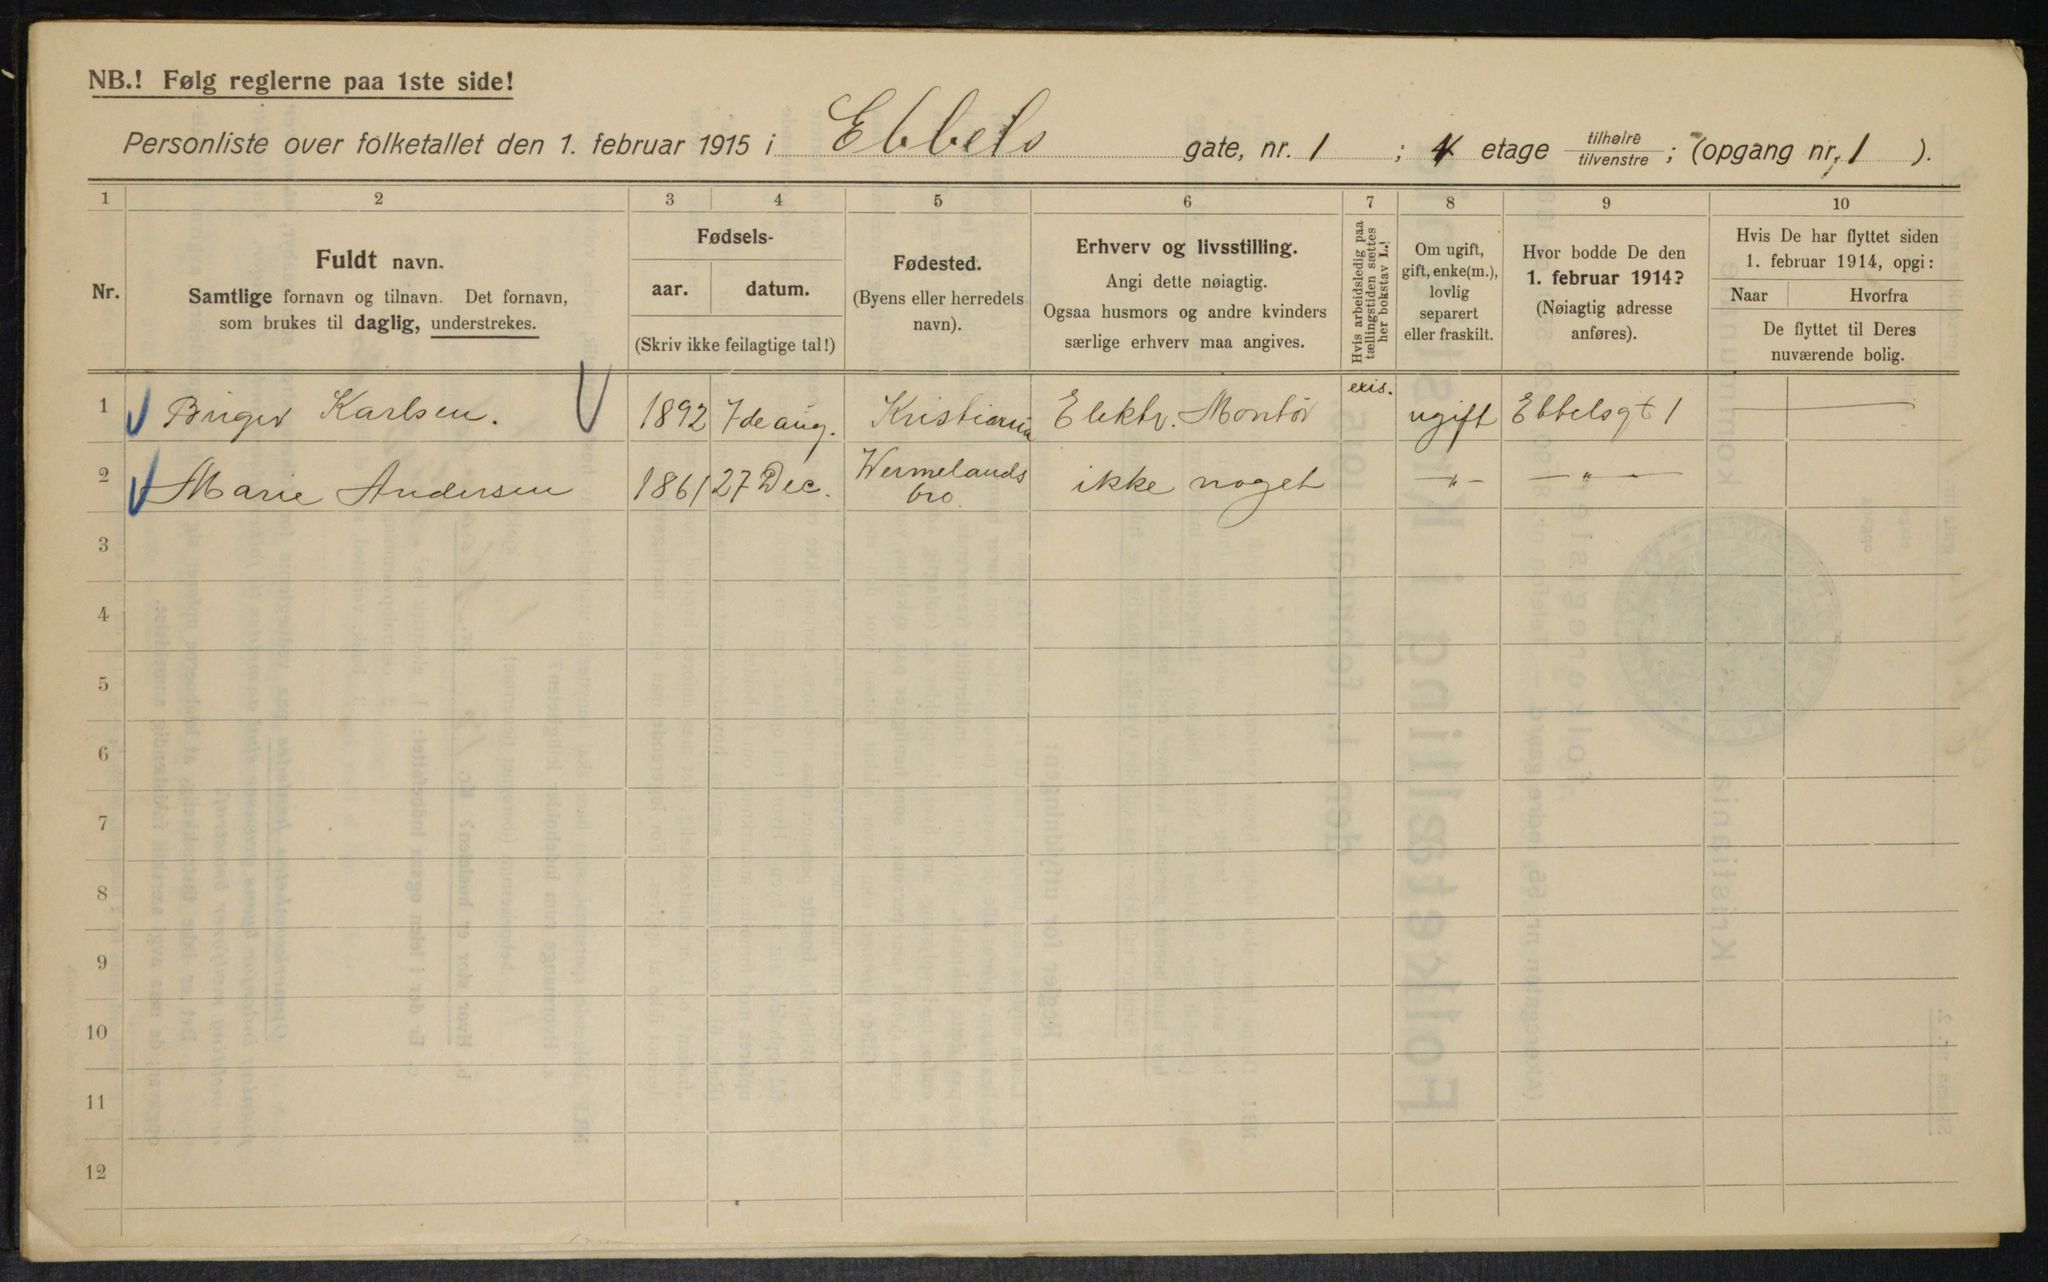 NB.! Følg reglerne paa 1ste side!
Personliste over folketallet den 1. februar 1915 i Ebbels gate, nr. 1 ; 4 etage tilhøire tilvenstre ; (opgang nr. 1 ).
1 2 3 4 5 6 7 8 9 10
Nr.
Fuldt navn.
Samtlige fornavn og tilnavn. Det fornavn,
som brukes til daglig, understrekes.
Fødsels-
aar. datum.
(Skriv ikke feilagtige tal!)
Fødested.
(Byens eller herredets
navn).
Erhverv og livsstilling.
Angi dette nøiagtig.
Ogsaa husmors og andre kvinders
særlige erhverv maa angives.
Hvis arbeidsledig paa
tællingstiden sættes
her bokstav L.!
Om ugift,
gift, enke(m.),
lovlig
separert
eller fraskilt.
Hvor bodde De den
1. februar 1914?
(Nøiagtig adresse
anføres).
Hvis De har flyttet siden
1. februar 1914, opgi:
Naar Hvorfra
De flyttet til Deres
nuværende bolig.
1 Birger Karlsen. 1892 7de aug. Kristiania Elektr. Montör ugift Ebbelsgt 1 —
2 Marie Andersen 1861 27 Dec. Wermelands
bro. ikke noget — " — — " —
3
4
5
6
7
8
9
10
11
12